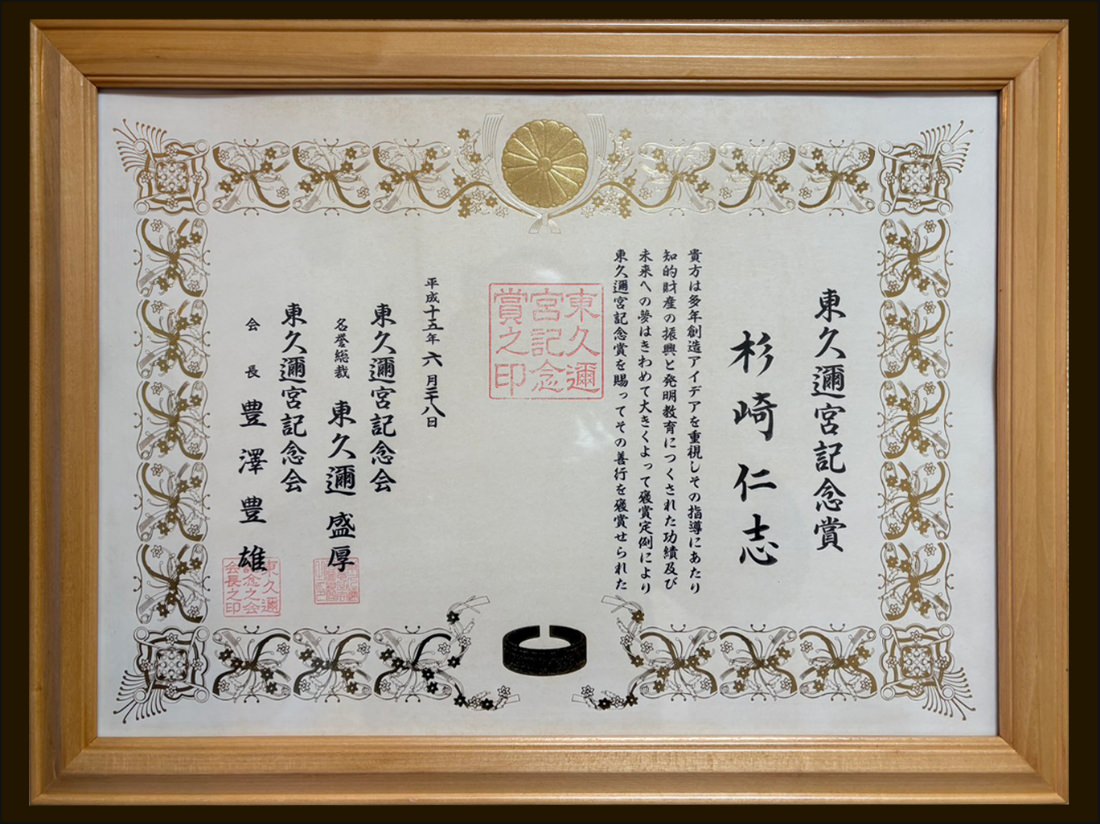 東久邇宮記念賞
杉崎仁志
貴方は多年創造アイデアを重視しその指導にあたり
知的財産の振興と発明教育につくされた功績及び
未来への夢はきわめて大きくよって褒賞定例により
東久邇宮記念賞を賜ってその善行を褒賞せられた
東久邇
宮記念
賞之印
平成十五年六月二十八日
東久邇宮記念会
名誉総裁 東久邇盛厚
東久邇宮記念会
会長 豊澤豊雄
東久邇
念之会
会長之印